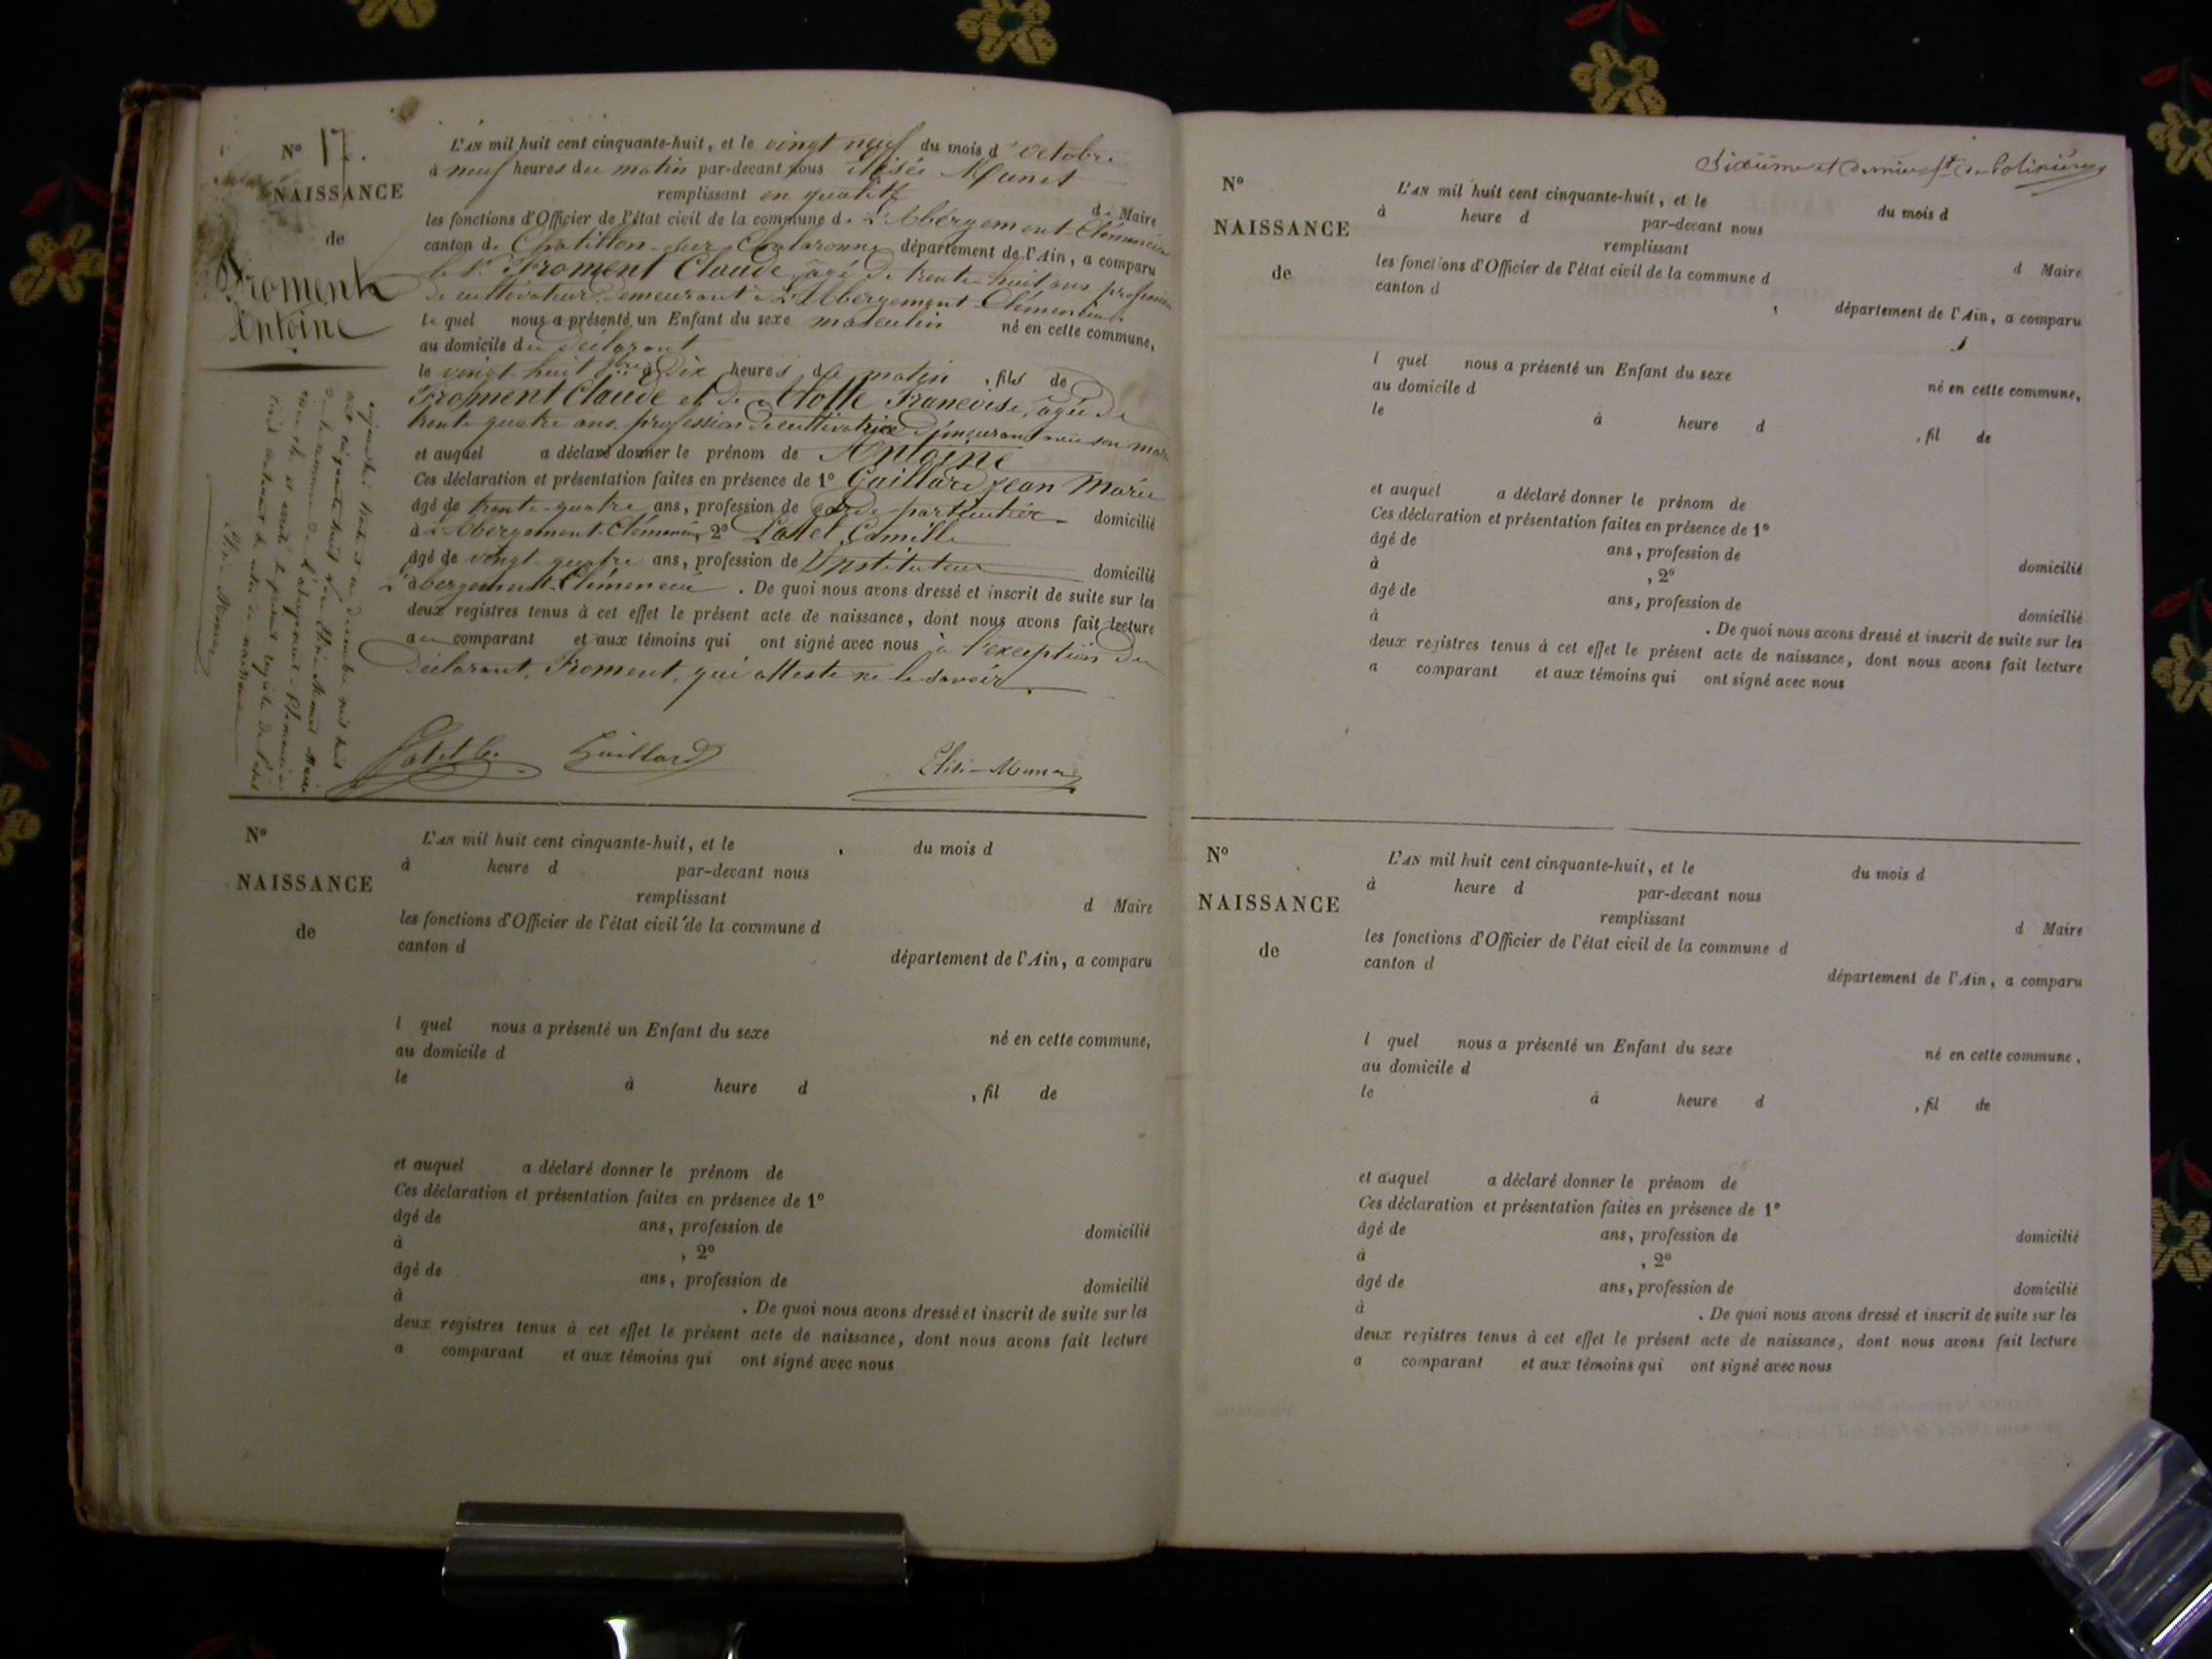 N° 17.
NAISSANCE
de
Froment
Antoine
L'AN mil huit cent cinquante-huit, et le vingt neuf du mois d'octobre
à neuf heures du matin par-devant nous Elisée Munet
remplissant en qualité
de Maire
les fonctions d'Officier de l'état civil de la commune de L'Abergement-Clémenciat
canton de Chatillon-sur-Chalaronne département de l'Ain, a comparu
le Sr Froment Claude, âgé de trente-huit ans profession
de cultivateur, demeurant à L'Abergement-Clémenciat.
le quel nous a présenté un Enfant du sexe masculin né en cette commune,
au domicile du déclarant
le vingt-huit à Dix heures du matin , fils de
Froment Claude et de Françoise, agée de
trente-quatre ans, profession de cultivatrice demeurant avec son mari
et auquel a déclaré donner le prénom de Antoine
Ces déclaration et présentation faites en présence de 1° Gaillard Jean Marie
âgé de trente-quatre ans, profession de garde particulier domicilié
à L'Abergement-Clémenciat, 2° Camille
âgé de vingt-quatre ans, profession de Instituteur domicilié
à L'abergement-Clémenciat . De quoi nous avons dressé et inscrit de suite sur les
deux registres tenus à cet effet le présent acte de naissance, dont nous avons fait lecture
au comparant et aux témoins qui ont signé avec nous à l'exception du
déclarant, Froment, qui atteste ne le savoir.
Gaillard
Elisée Munet
N°
NAISSANCE
de
L'AN mil huit cent cinquante-huit, et le du mois d
à heure d par-devant nous
remplissant
d Maire
les fonctions d'Officier de l'état civil de la commune d
canton d
département de l'Ain, a comparu
l quel nous a présenté un Enfant du sexe né en cette commune,
au domicile d
le à heure d , fil de
et auquel a déclaré donner le prénom de
Ces déclaration et présentation faites en présence de 1°
âgé de ans, profession de domicilié
à , 2°
âgé de ans, profession de domicilié
à . De quoi nous avons dressé et inscrit de suite sur les
deux registres tenus à cet effet le présent acte de naissance, dont nous avons fait lecture
a comparant et aux témoins qui ont signé avec nous
Sixième et dernier
N°
NAISSANCE
de
L'AN mil huit cent cinquante-huit, et le du mois d
à heure d par-devant nous
remplissant
d Maire
les fonctions d'Officier de l'état civil de la commune d
canton d
département de l'Ain, a comparu
l quel nous a présenté un Enfant du sexe né en cette commune,
au domicile d
le à heure d , fil de
et auquel a déclaré donner le prénom de
Ces déclaration et présentation faites en présence de 1°
âgé de ans, profession de domicilié
à , 2°
âgé de ans, profession de domicilié
à . De quoi nous avons dressé et inscrit de suite sur les
deux registres tenus à cet effet le présent acte de naissance, dont nous avons fait lecture
a comparant et aux témoins qui ont signé avec nous
N°
NAISSANCE
de
L'AN mil huit cent cinquante-huit, et le du mois d
à heure d par-devant nous
remplissant
d Maire
les fonctions d'Officier de l'état civil de la commune d
canton d
département de l'Ain, a comparu
l quel nous a présenté un Enfant du sexe né en cette commune,
au domicile d
le à heure d , fil de
et auquel a déclaré donner le prénom de
Ces déclaration et présentation faites en présence de 1°
âgé de ans, profession de domicilié
à , 2°
âgé de ans, profession de domicilié
à . De quoi nous avons dressé et inscrit de suite sur les
deux registres tenus à cet effet le présent acte de naissance, dont nous avons fait lecture
a comparant et aux témoins qui ont signé avec nous